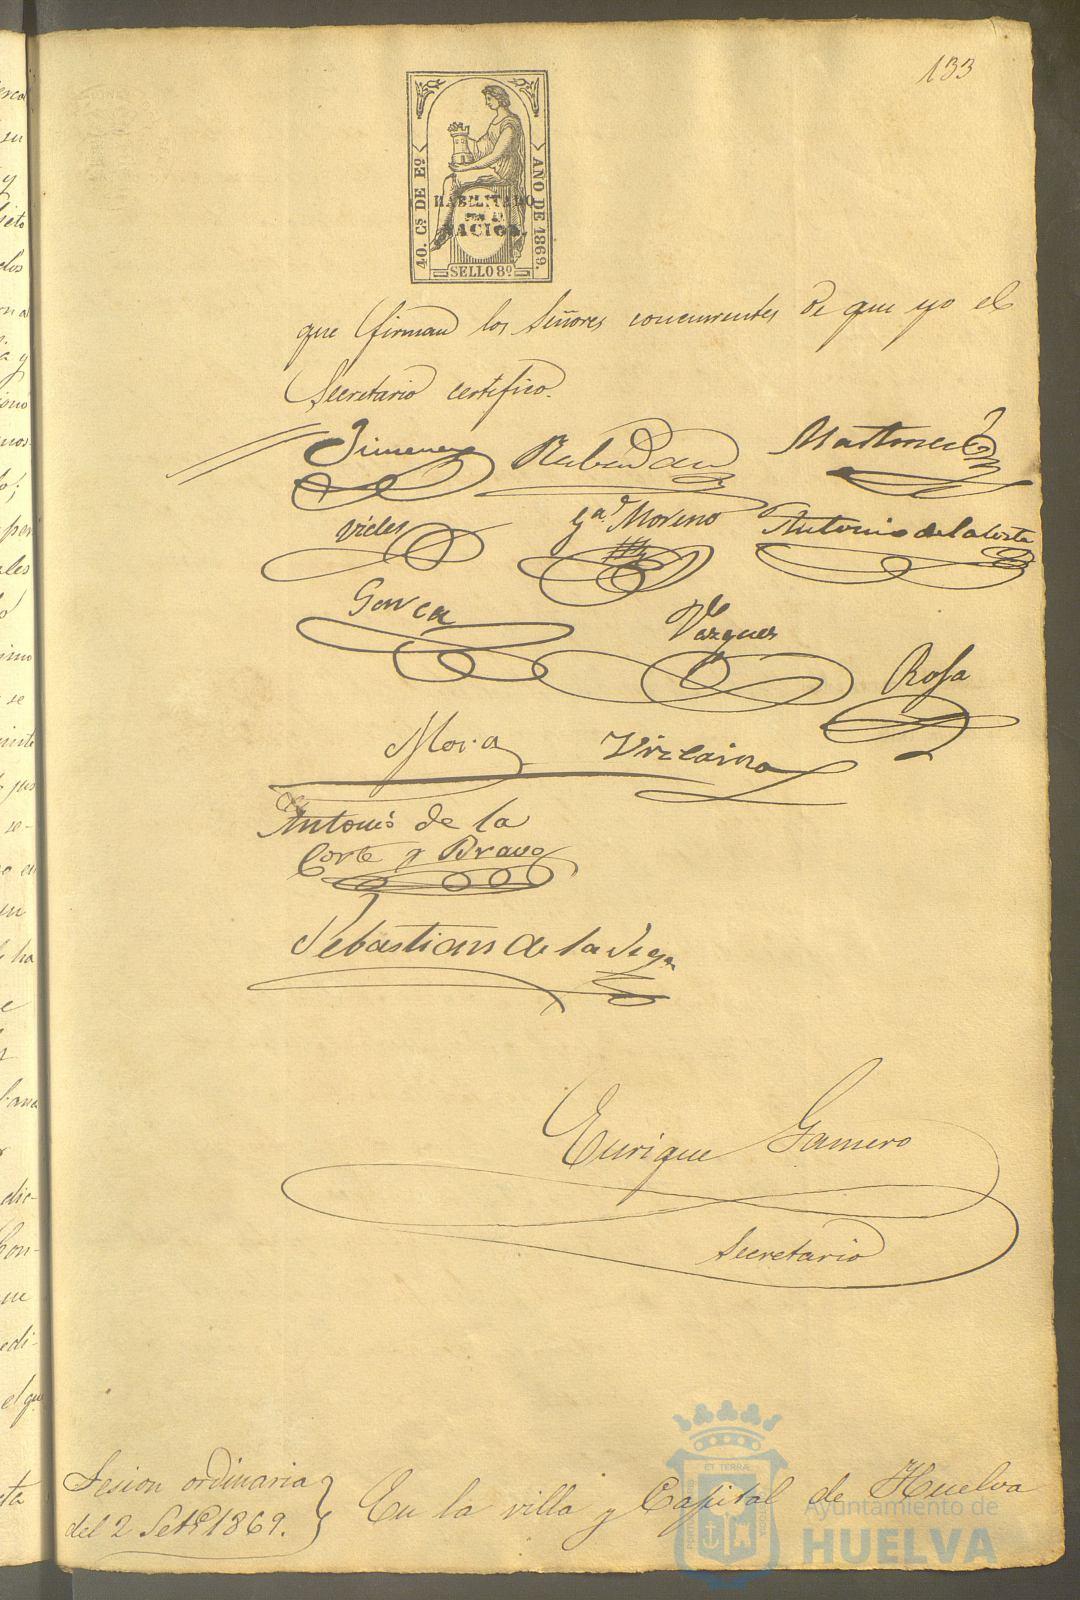 133
40. Cs DE Eº
AÑO DE 1869.
HABILITADO
POR LA
NACION.
SELLO 8º
que firman los Señores concurrentes de que yo el
Secretario certifico.
Jimenez
Martinez
Gª Moreno
Antonio de la Corte
Vazquez
Rosa
Mora
Vizcaino
Antonio de la
Corte y Bravo
Sebastian de la Vega
Enrique Gamero
Secretario
Sesion ordinaria
del 2 Setᵉ 1869.
En la villa y Capital de Huelva
Ayuntamiento de
HUELVA